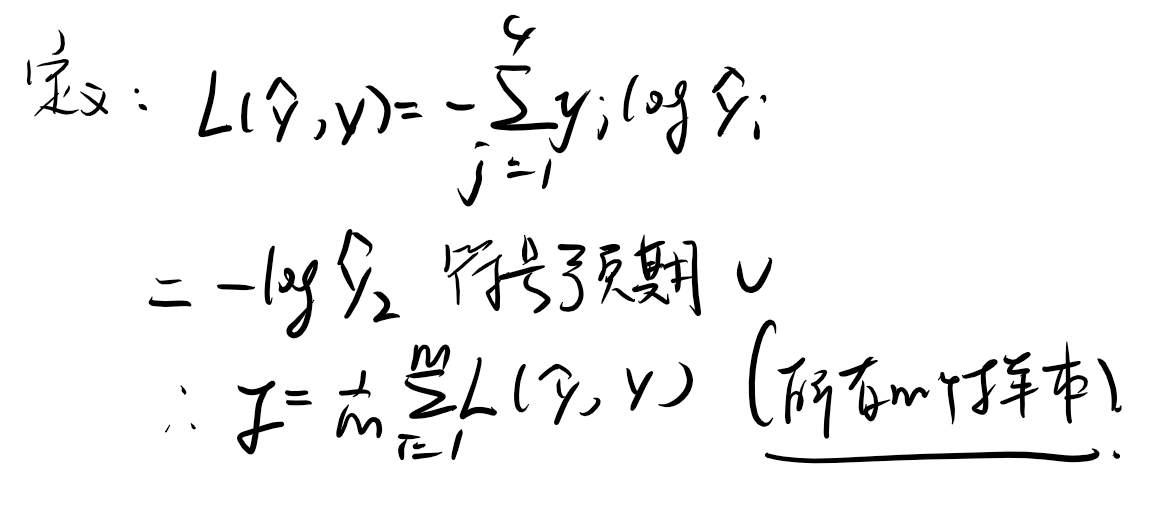 定义: L(ŷ,y)= -∑_{j=1}^{4} y_j log ŷ_j
= -log ŷ₂ 符号预期 ∪
∴ J= 1/m ∑_{i=1}^{m} L(ŷ, y) (所有m个样本).